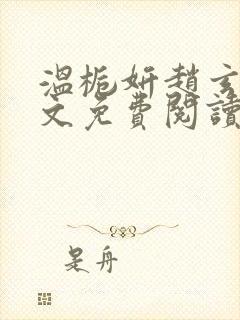 溫梔妍趙玄
文免費閱讀
是舟